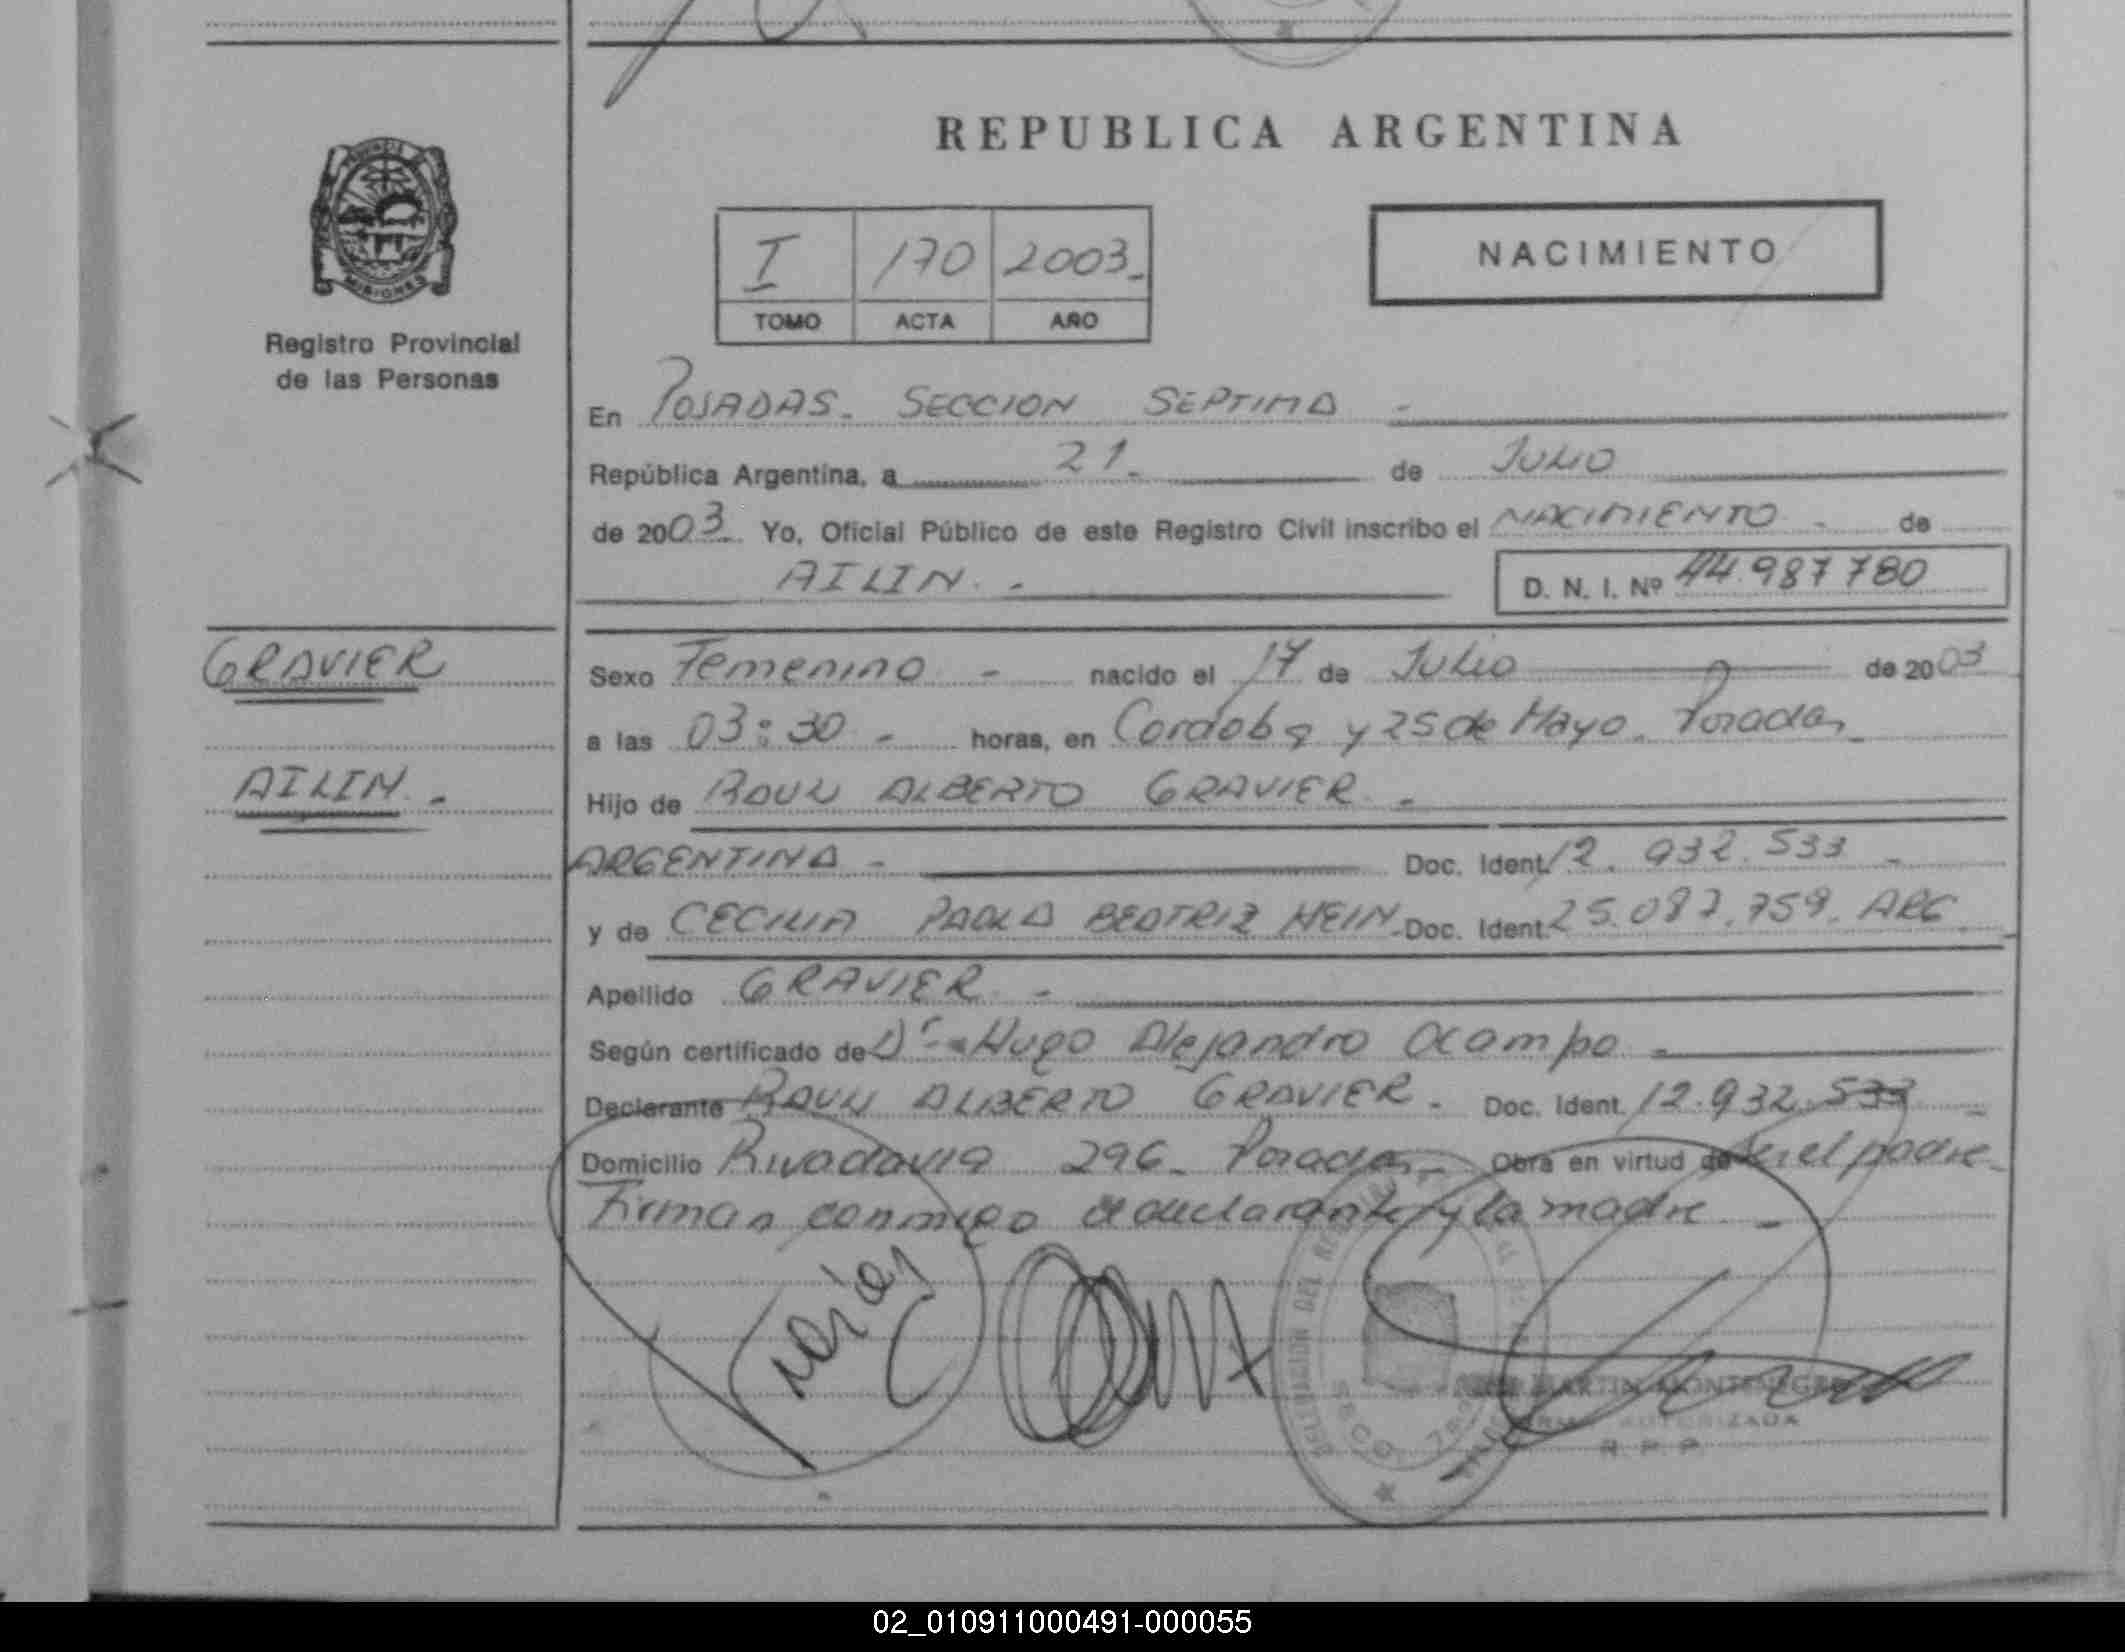 REPUBLICA ARGENTINA
PROVINCIA DE
MISIONES
Registro Provincial
de las Personas
I 170 2003_
TOMO ACTA AÑO
NACIMIENTO
En POSADAS. SECCION SEPTIMA -
República Argentina, a 21. de JULIO
de 2003. Yo, Oficial Público de este Registro Civil inscribo el NACIMIENTO - de
AILIN. -
D. N. I. Nº 44.987780
GRAVIER
AILIN. -
Sexo Femenino - nacido el 17 de Julio de 2003
a las 03:30 - horas, en Cordoba y 25 de Mayo. Posadas_
Hijo de RAUL ALBERTO GRAVIER. -
ARGENTINA - Doc. Ident. 12.932.533 -
y de CECILIA PAOLA BEATRIZ HEIN. Doc. Ident. 25.087.759. ARG
Apellido GRAVIER -
Según certificado de Dr. Hugo Alejandro Ocampo -
Declarante RAUL ALBERTO GRAVIER - Doc. Ident. 12.932.533 -
Domicilio Rivadavia 296_ Posadas_ Obra en virtud de Ser el padre_
Firman conmigo el declarante y la madre -
DELEGACION DEL
MARTIN MONTENEGRO
FIRMA AUTORIZADA
R. P. P.
02_010911000491-000055